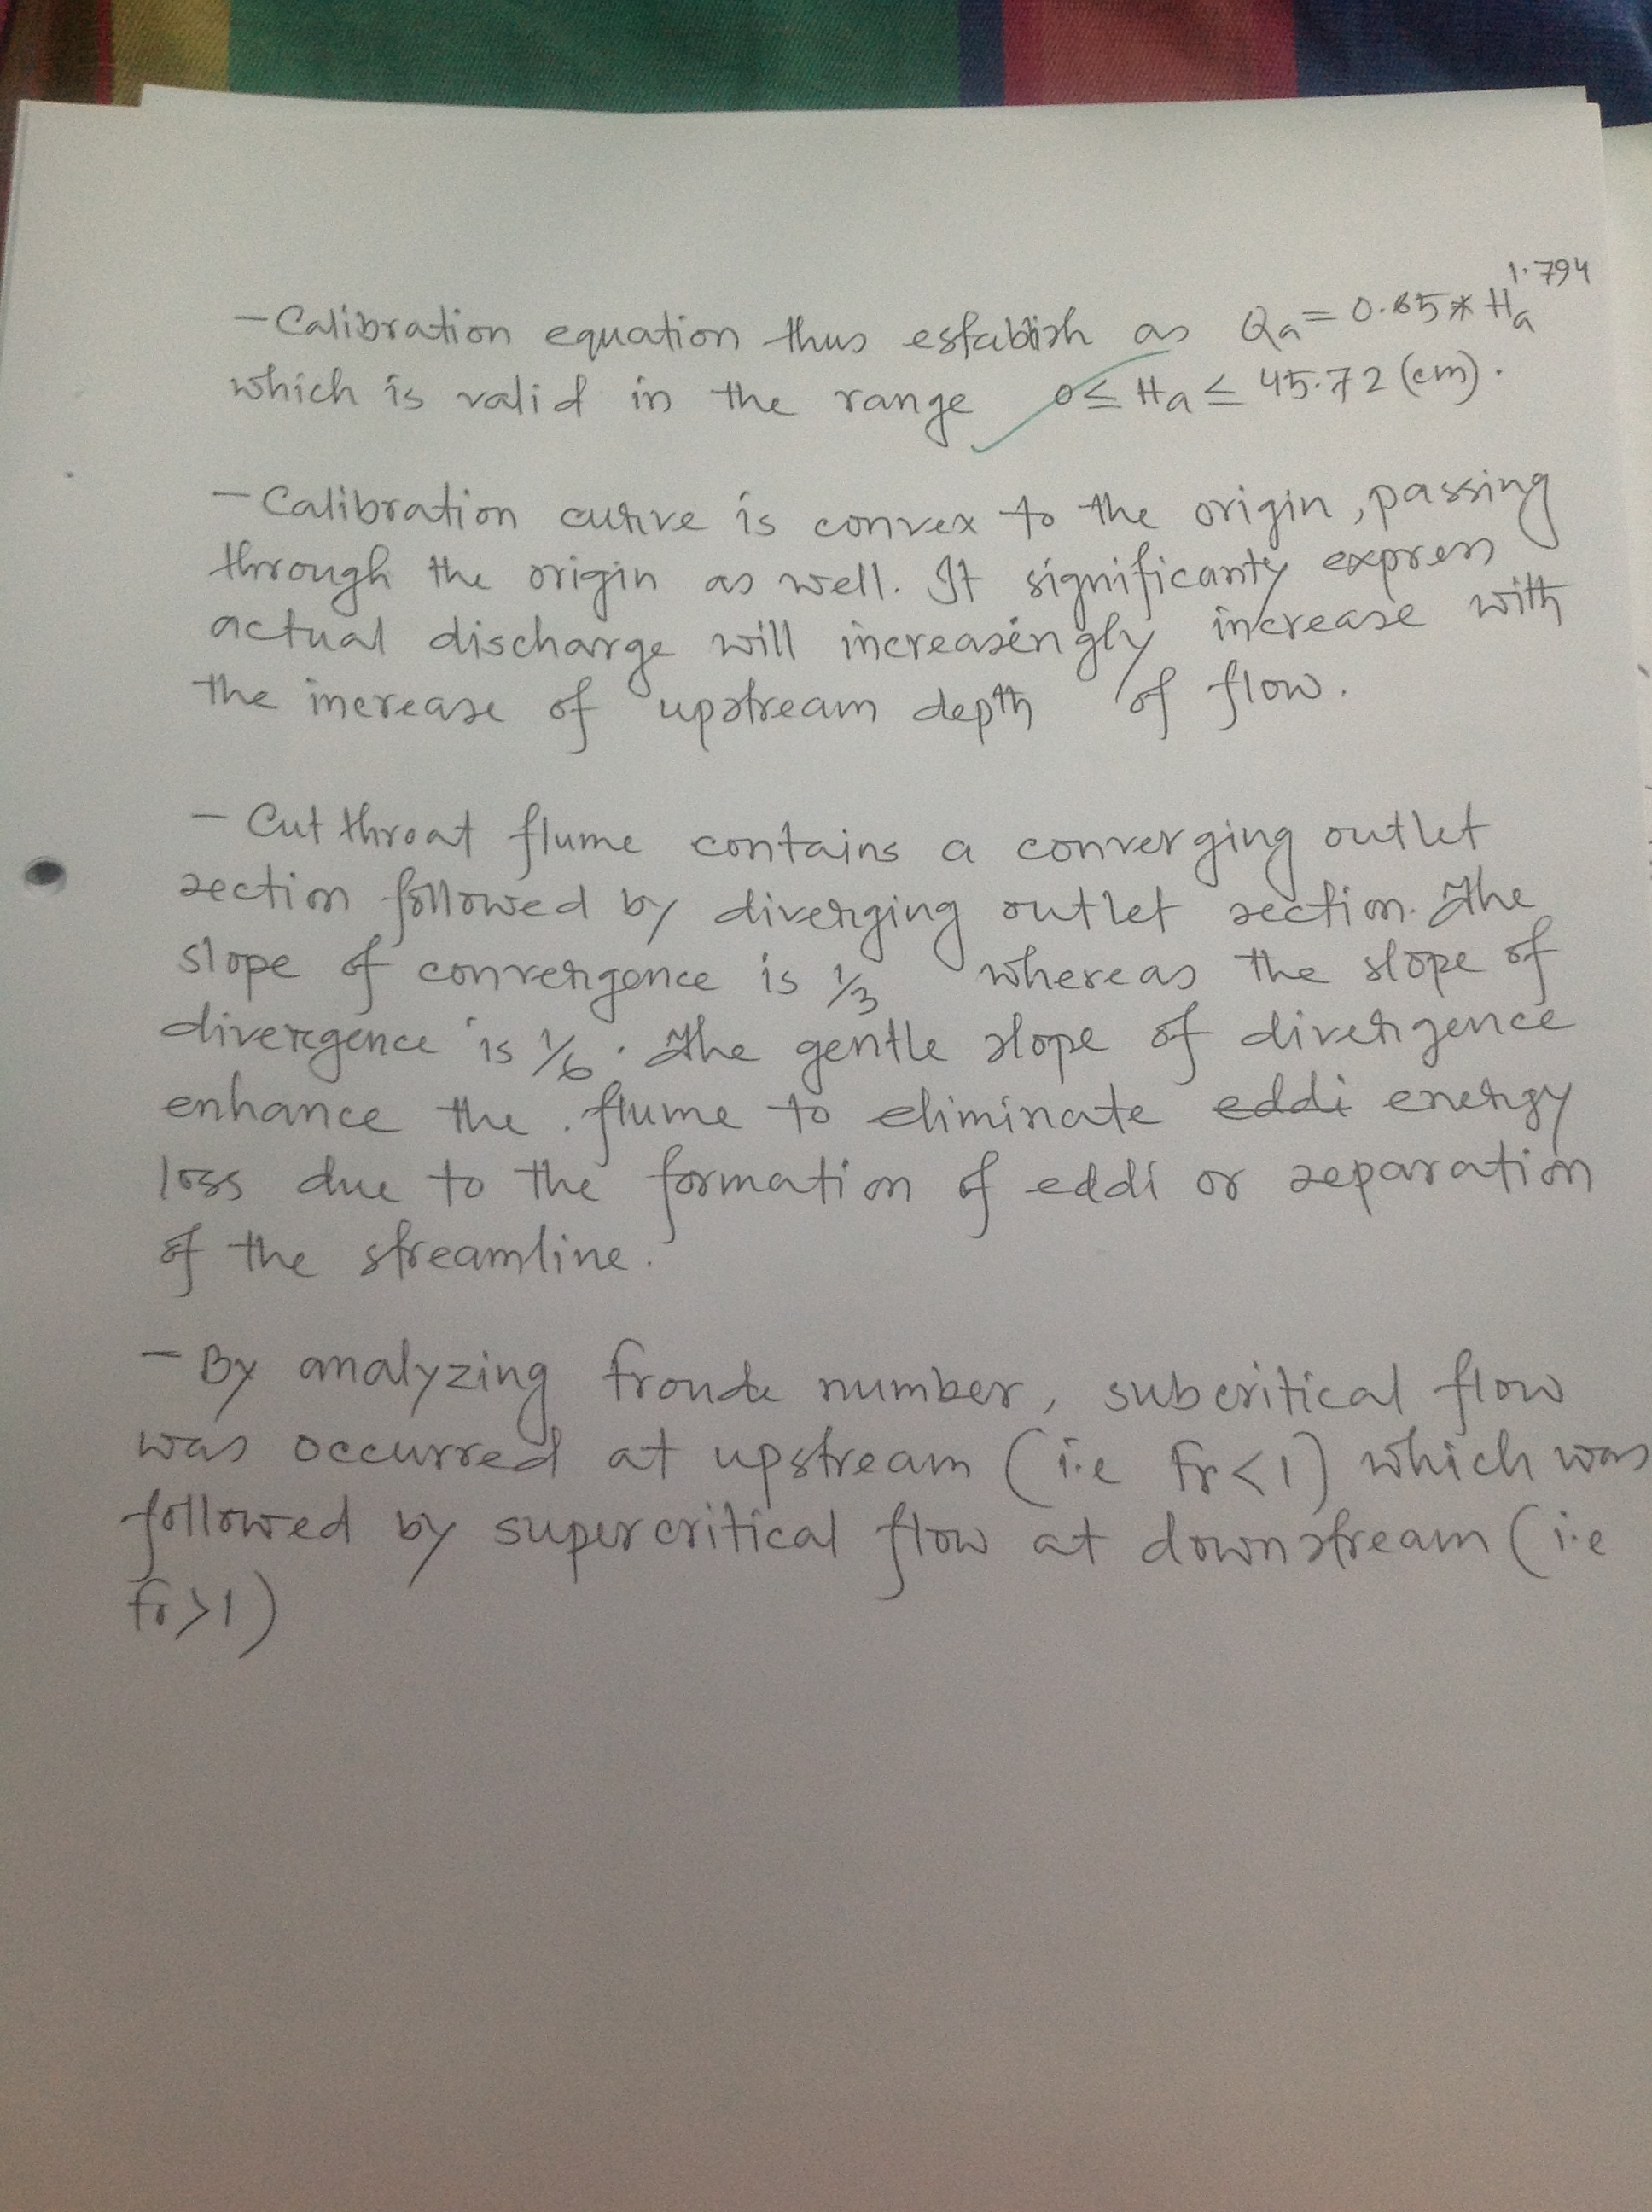 - Calibration equation thus establish as Qa = 0.65 * Ha^1.794
which is valid in the range 0 ≤ Ha ≤ 45.72 (cm).
- Calibration curve is convex to the origin, passing
through the origin as well. It significanty express
actual discharge will increasingly increase with
the increase of upstream depth of flow.
- Cut throat flume contains a converging outlet
section followed by diverging outlet section. The
slope of convergence is 1/3 whereas the slope of
divergence is 1/6. The gentle slope of divergence
enhance the flume to eliminate eddi energy
loss due to the formation of eddi or separation
of the streamline.
- By analyzing froude number, subcritical flow
was occurred at upstream (i.e Fr<1) which was
followed by supercritical flow at downstream (i.e
Fr>1)